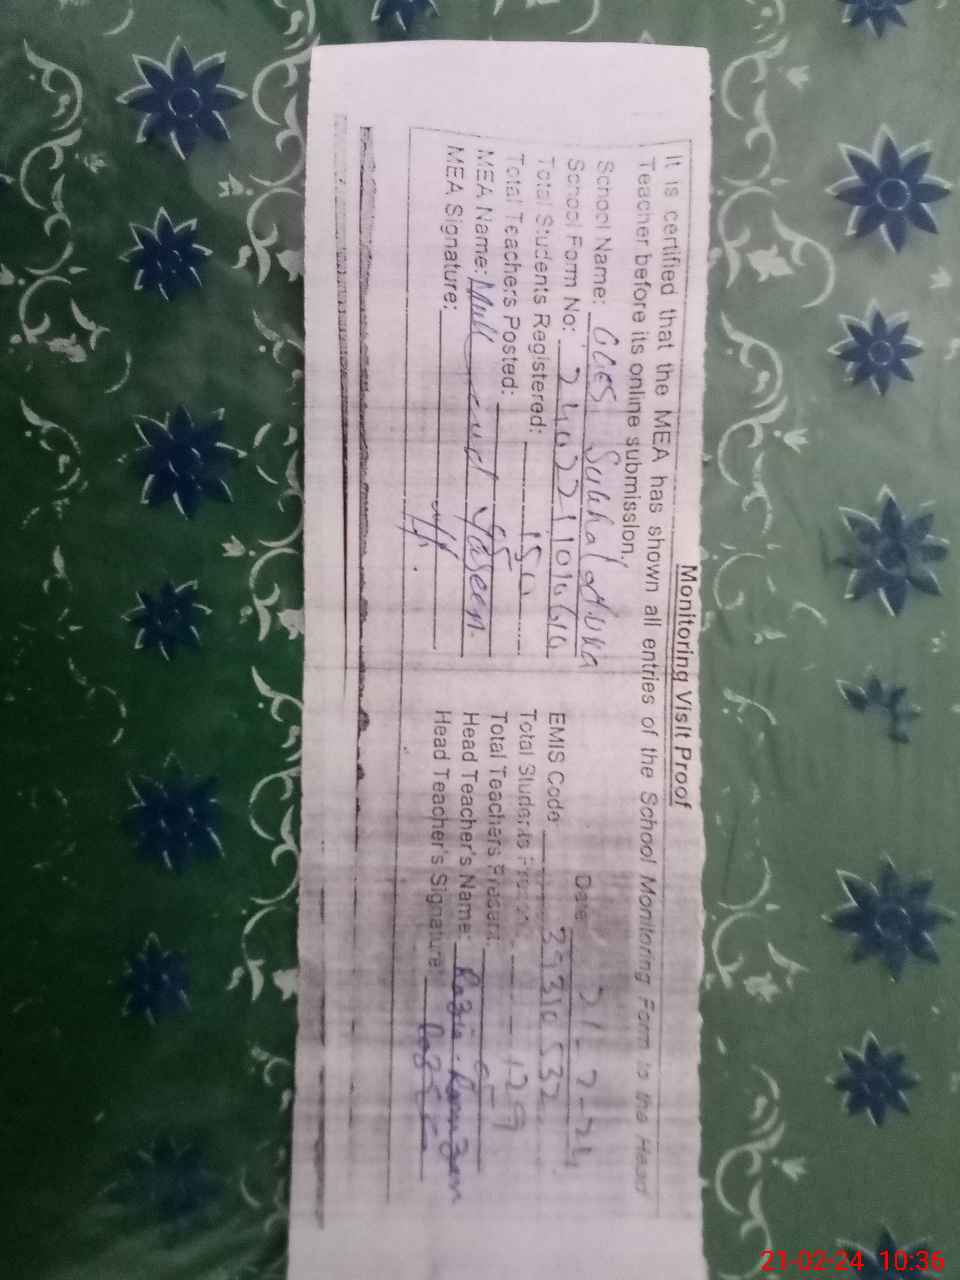 Monitoring Visit Proof
It is certified that the MEA has shown all entries of the School Monitoring Form to the Head
Teacher before its online submission.
Date: 21-2-24
School Name: GGES
School Form No:
EMIS Code 39310532
Total Students Registered: 150
Total Students Present 129
Total Teachers Posted: 05
Total Teachers Present
MEA Name: Yaseen
Head Teacher's Name: Razia Ramzan
MEA Signature:
Head Teacher's Signature: Razia
21-02-24 10:36